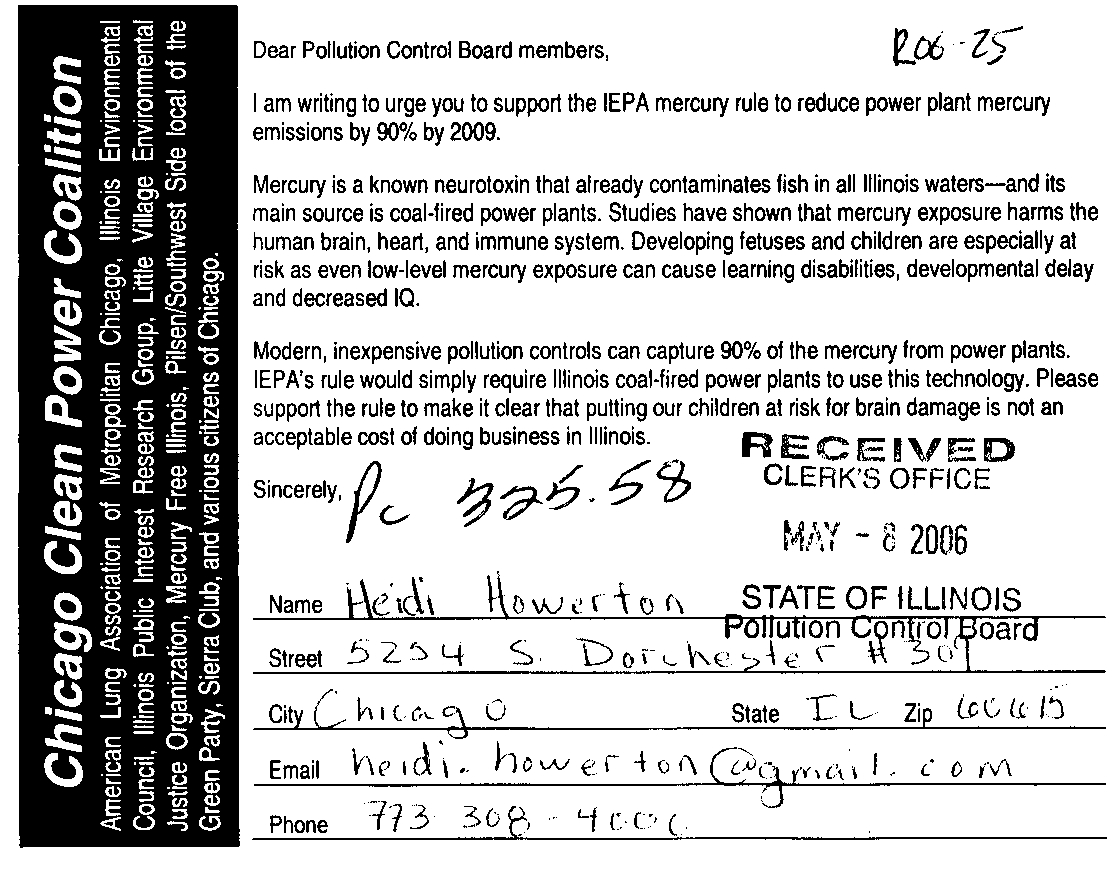 Chicago Clean Power Coalition
American Lung Association of Metropolitan Chicago, Illinois Environmental
Council, Illinois Public Interest Research Group, Little Village Environmental
Justice Organization, Mercury Free Illinois, Pilsen/Southwest Side local of the
Green Party, Sierra Club, and various citizens of Chicago.
Dear Pollution Control Board members,
R06-25
I am writing to urge you to support the IEPA mercury rule to reduce power plant mercury
emissions by 90% by 2009.
Mercury is a known neurotoxin that already contaminates fish in all Illinois waters—and its
main source is coal-fired power plants. Studies have shown that mercury exposure harms the
human brain, heart, and immune system. Developing fetuses and children are especially at
risk as even low-level mercury exposure can cause learning disabilities, developmental delay
and decreased IQ.
Modern, inexpensive pollution controls can capture 90% of the mercury from power plants.
IEPA's rule would simply require Illinois coal-fired power plants to use this technology. Please
support the rule to make it clear that putting our children at risk for brain damage is not an
acceptable cost of doing business in Illinois.
RECEIVED
CLERK'S OFFICE
MAY - 8 2006
STATE OF ILLINOIS
Pollution Control Board
Sincerely,
Pc 325.58
Name Heidi Howerton
Street 5254 S. Dorchester # 309
City Chicago State IL Zip 60615
Email heidi.howerton@gmail.com
Phone 773 308-